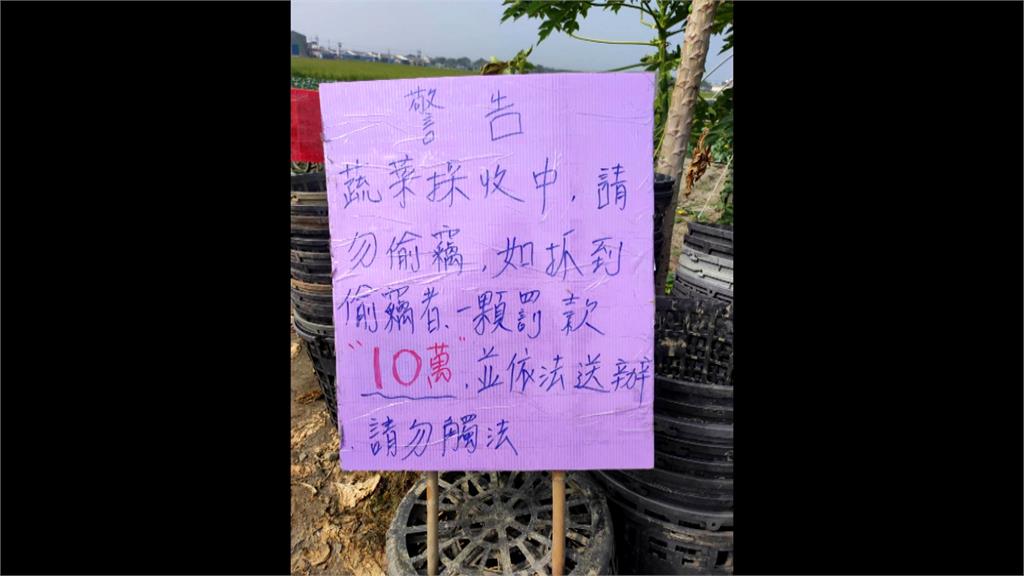 警告
蔬菜採收中,請
勿偷竊,如抓到
偷竊者、一顆罰款
"10萬",並依法送辦
、請勿觸法